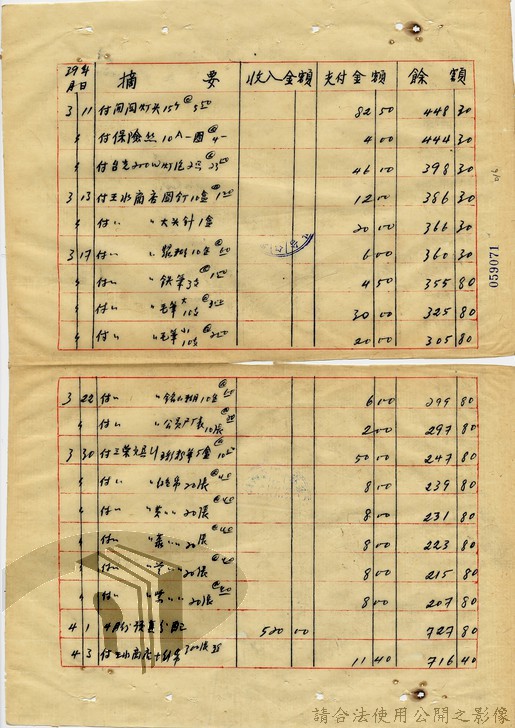 39年月日 摘要 收入金額 支付金額 餘額
3 11 付 灯头15个 @550 82 50 448 30
〃 付保險丝10A一圈 @4- 4 00 444 30
〃 付 200W灯泡2只 @2300 46 00 398 30
3 13 付王水商店圖釘10盒 @120 12 00 386 30
付〃 〃 大头針1盒 20 00 366 30
3 17 付〃 〃 10盒 @60 6 00 360 30
〃 付〃 〃 鉄筆3支 @150 4 50 355 80
〃 付〃 〃 毛筆大10支 30 00 325 80
〃 付〃 〃 毛筆小10支 @200 20 00 305 80
059071
3 22 付〃 〃 10盒 @60 6 00 299 80
〃 付〃 〃 10張 @20 2 00 297 80
3 30 付 5盒 50 00 247 80
〃 付〃 20張 @40 8 00 239 80
〃 付〃 20張 @40 8 00 231 80
〃 付〃 20張 @40 8 00 223 80
〃 付〃 20張 @40 8 00 215 80
〃 付〃 20張 @40 8 00 207 80
4 1 4月份預算分配 520 00 727 80
4 3 付王水商店 300張 38 11 40 716 40
請合法使用公開之影像